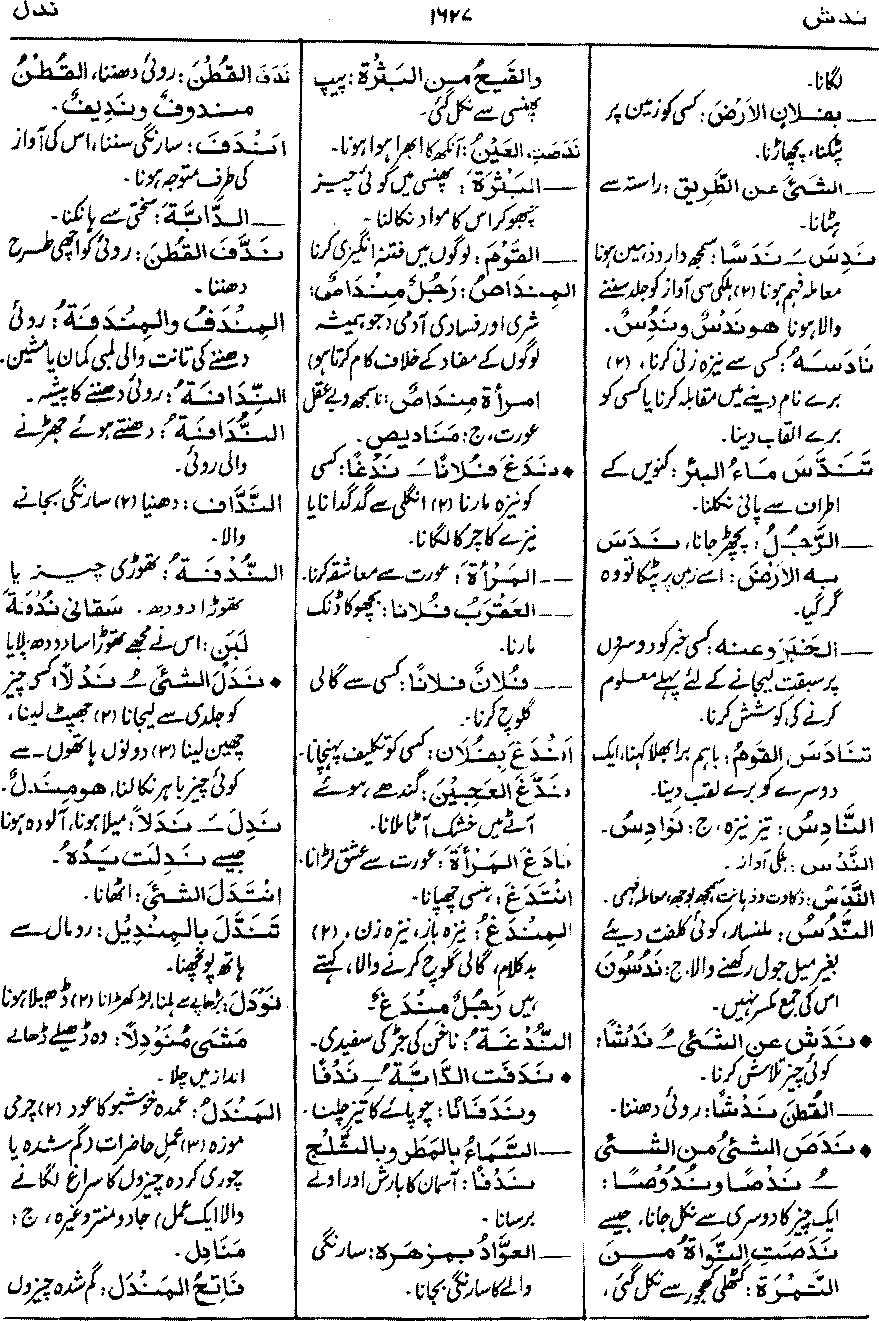 ندش
۱۶۲۷
ندل
لگانا۔
ــ بفلانٍ الأرضَ: کسی کو زمین پر
پٹکنا، پچھاڑنا۔
ــ الشئَ عن الطَّریق: راستہ سے
ہٹانا۔
نَدِسَ ــَ نَدَسًا: سمجھ دار و ذہین ہونا
معاملہ فہم ہونا (۲) ہلکی سی آواز کو جلد سننے
والا ہونا ھو نَدْسٌ و نَدُسٌ۔
نَادَسَهُ: کسی سے نیزہ زنی کرنا، (۲)
برے نام دینے میں مقابلہ کرنا یا کسی کو
برے القاب دینا۔
تَنَدَّسَ ماءُ البئر: کنویں کے
اطراف سے پانی نکلنا۔
ــ الرَّجُلُ: پچھڑ جانا، نَدَسَ
به الأرضَ: اسے زمین پر پٹکا تو وہ
گر گیا۔
ــ الخبَرَ و عنه: کسی خبر کو دوسروں
پر سبقت لیجانے کے لئے پہلے معلوم
کرنے کی کوشش کرنا۔
تنادَسَ القومُ: باہم برا بھلا کہنا، ایک
دوسرے کو برے لقب دینا۔
النَّادِسُ: تیز نیزہ، ج: نَوادِسُ۔
النَّدْسُ: ہلکی آواز۔
النَّدَسُ: ذکاوت و ذہانت، سمجھ بوجھ، معاملہ فہمی۔
النَّدُسُ: ملنسار، کوئی کلفت دیئے
بغیر میل جول رکھنے والا، ج: نَدُسُونَ
اس کی جمع مکسر نہیں۔
• نَدَشَ عن الشئِ ــُ نَدْشًا:
کوئی چیز تلاش کرنا۔
ــ القُطنَ نَدْشًا: روئی دھننا۔
• نَدَصَ الشئُ من الشئِ
ــُ نَدْصًا و نُدُوْصًا:
ایک چیز کا دوسری سے نکل جانا، جیسے
نَدَصَتِ النَّواةُ مِنَ
التَّمْرَةِ: گٹھلی کھجور سے نکل گئی،
والقَیحُ من البَثْرةِ: پیپ
پھنسی سے نکل گئی۔
نَدَصَتِ العَیْنُ: آنکھ کا ابھرا ہوا ہونا۔
ــ البَثْرَةَ: پھنسی میں کوئی چیز
چبھو کر اس کا مواد نکالنا۔
ــ القَوْمَ: لوگوں میں فتنہ انگیزی کرنا
المِنداصُ: رَجُلٌ مِنْداصٌ:
شری اور فسادی آدمی (جو ہمیشہ
لوگوں کے مفاد کے خلاف کام کرتا ہو)
امرأة مِنداصٌ: ناسمجھ و بے عقل
عورت، ج: مَنادیص۔
• نَدَغَ فُلانًا ــَ نَدْغًا: کسی
کو نیزہ مارنا (۲) انگلی سے گدگدانا یا
نیزے کا چرکا لگانا۔
ــ المَرْأةَ: عورت سے معاشقہ کرنا۔
ــ العَقْرَبُ فُلانا: بچھو کا ڈنک
مارنا۔
ــ فُلانٌ فلانًا: کسی سے گالی
گلوچ کرنا۔
اَنْدَغَ بِفُلان: کسی کو تکلیف پہنچانا۔
نَدَّغَ العَجِیْنَ: گندھے ہوئے
آٹے میں خشک آٹا ملانا۔
نادَغَ المَرْأةَ: عورت سے عشق لڑانا۔
انْتَدَغَ: ہنسی چھپانا۔
المِنْدَغُ: نیزہ باز، نیزہ زن، (۲)
بدکلام، گالی گلوچ کرنے والا، کہتے
ہیں رَجُلٌ مِنْدَغٌ۔
النُّدْغَةُ: ناخن کی جڑ کی سفیدی۔
• نَدَفَتِ الدَّابَّةُ ــِ نَدْفًا
و نَدَفَانًا: چوپائے کا تیز چلنا۔
ــ السَّماءُ بالمَطَرِ و بالثَّلْجِ
نَدْفًا: آسمان کا بارش اور اولے
برسانا۔
ــ العوَّادُ بمِزهرِہ: سارنگی
والے کا سارنگی بجانا۔
نَدَفَ القُطْنَ: روئی دھننا، القُطْنُ
مندوفٌ و نَدِیفٌ۔
اَنْدَفَ: سارنگی سننا، اس کی آواز
کی طرف متوجہ ہونا۔
ــ الدَّابَّةَ: سختی سے ہانکنا۔
نَدَّفَ القُطْنَ: روئی کو اچھی طرح
دھننا۔
المِنْدَفُ والمِنْدَفَةُ: روئی
دھننے کی تانت والی لمبی کمان یا مشین۔
النِّدَافَةُ: روئی دھننے کا پیشہ۔
النُّدَافَةُ: دھنتے ہوئے جھڑنے
والی روئی۔
النَّدَّاف: دھنیا (۲) سارنگی بجانے
والا۔
النُّدْفَةُ: تھوڑی چیز یا
تھوڑا دودھ۔ سَقانی نُدْفَةَ
لَبَنٍ: اس نے مجھے تھوڑا سا دودھ پلایا
• نَدَلَ الشئَ ــُ نَدْلًا: کسی چیز
کو جلدی سے لیجانا (۲) جھپٹ لینا،
چھین لینا (۳) دونوں ہاتھوں سے
کوئی چیز باہر نکالنا، ھو مِندلٌ۔
نَدِلَ ــَ نَدَلًا: میلا ہونا، آلودہ ہونا
جیسے نَدِلَت یَدُہُ۔
انْتَدَلَ الشئَ: اٹھانا۔
تَنَدَّلَ بالمِنْدِیْل: رومال سے
ہاتھ پونچھنا۔
نَوْدَلَ: بڑھاپے سے ہلنا، لڑکھڑانا (۲) ڈھیلا ہونا
مَشَی مُنَوْدِلاً: وہ ڈھیلے ڈھالے
انداز میں چلا۔
المَنْدَلُ: عمدہ خوشبو کا عود (۲) چرمی
موزہ (۳) عمل حاضرات (گم شدہ یا
چوری کردہ چیزوں کا سراغ لگانے
والا ایک عمل) جادو منتر وغیرہ، ج:
مَنَادِل۔
فاتِحُ المَنْدَل: گم شدہ چیزوں